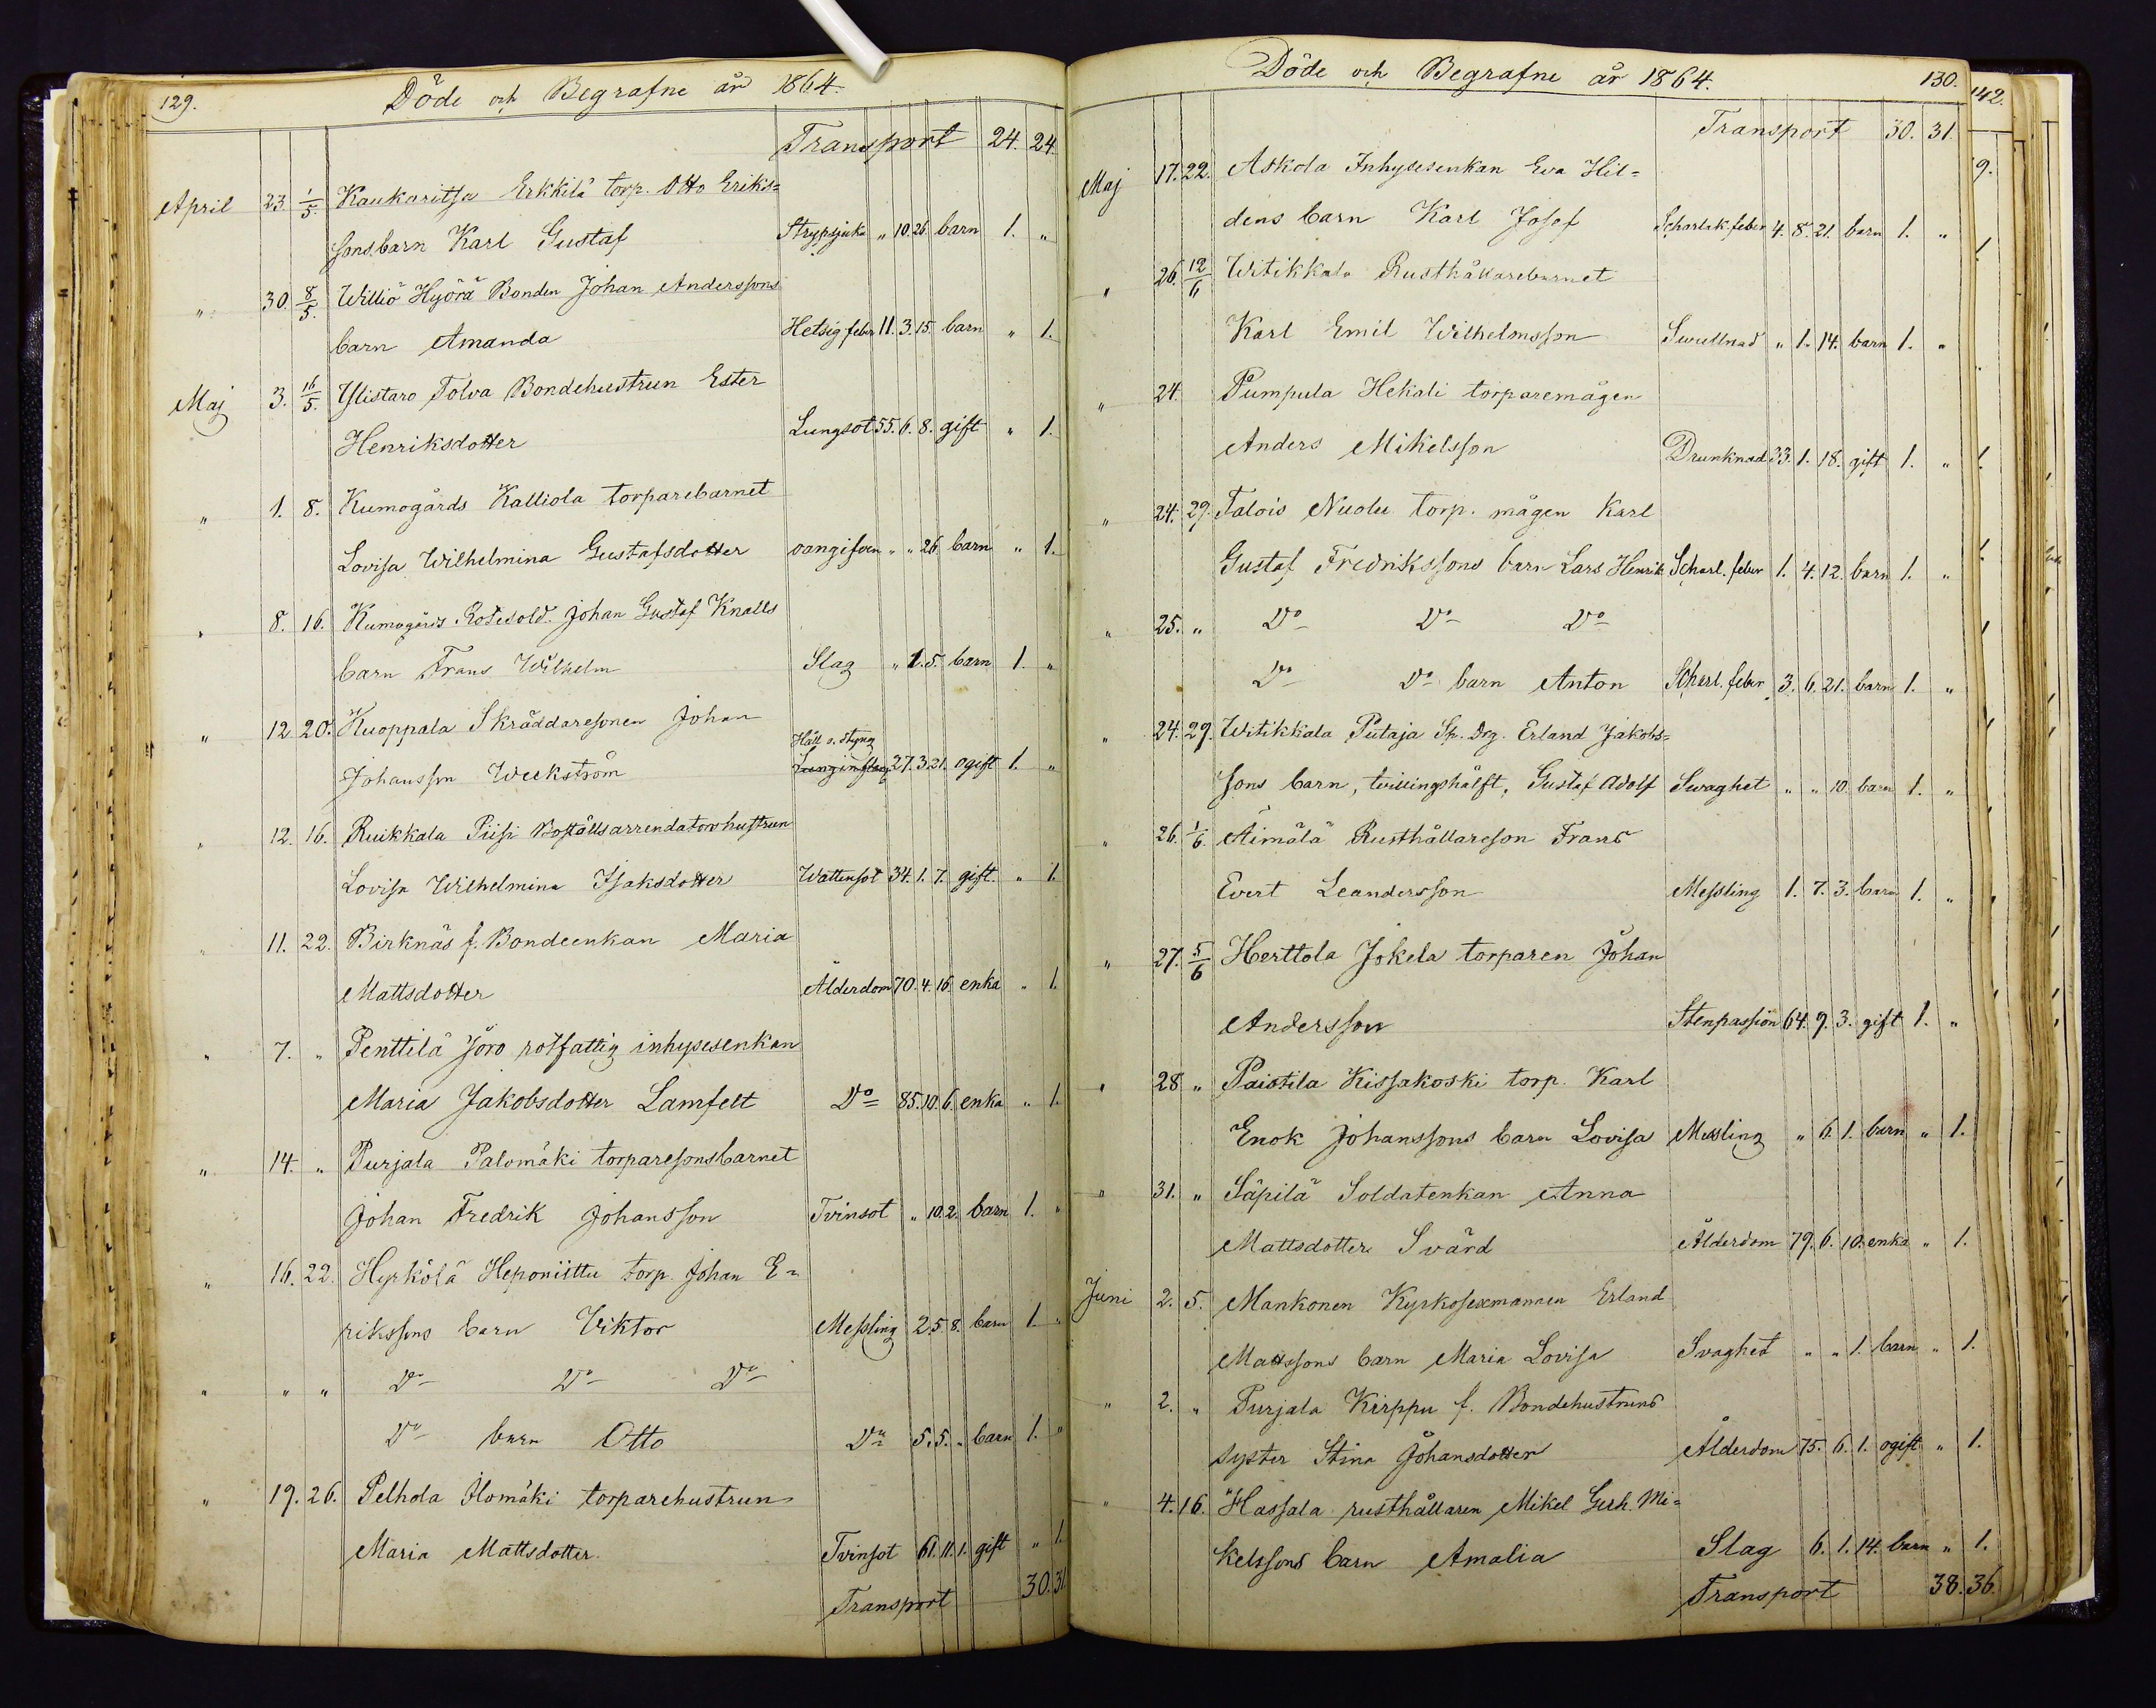 129.
Döde och Begrafne år 1864.
Transport 24. 24.
April 23. 1/5. Kaukaritsa Erkkilä torp. Otto Eriks=
sons barn Karl Gustaf Strypsjuka " 10. 26. barn 1. "
" 30. 8/5. Williö Hyörä Bonden Johan Anderssons
barn Amanda Hetsig feber 11. 3. 15. barn " 1.
Maj 3. 16/5. Ylistaro Tolva Bondehustrun Ester
Henriksdotter Lungsot 55. 6. 8. gift " 1.
" 1. 8. Kumogårds Kalliola torparebarnet
Lovisa Wilhelmina Gustafsdotter oangifven " " 26 barn " 1.
" 8. 16. Kumogårds Rotesold. Johan Gustaf Knalls
barn Frans Wilhelm Slag " 1. 5. barn 1. "
" 12 20. Kuoppala Skräddaresonen Johan
Håll o. styng
Johansson Weckström 27. 3. 21. ogift 1. "
" 12. 16. Ruikkala Piisi Boställsarrendatorshustrun
Lovisa Wilhelmina Isaksdotter Wattensot 34. 1. 7. gift. " 1.
" 11. 22. Birknäs f. Bondeenkan Maria
Mattsdotter Ålderdom 70. 4. 16 enka " 1.
" 7. " Penttilä Joro rotfattig inhysesenkan
Maria Jakobsdotter Lamfelt Do 85. 10. 6. enka " 1.
" 14. " Purjala Palomäki torparesonsbarnet
Johan Fredrik Johansson Tvinsot " 10. 2. barn 1. "
" 16. 22. Hyrkölä Heponiittu torp. Johan E=
rikssons barn Viktor Messling 2. 5. 8. barn 1. "
" " " Do Do Do
Do barn Otto Do 5. 5. " barn 1. "
" 19. 26. Pelhola Ilomäki torparehustrun
Maria Mattsdotter. Tvinsot 61. 11. 1. gift " 1.
Transport 30. 31
Döde och Begrafne år 1864.
130.
142.
Transport 30. 31.
Maj 17. 22. Askola Inhysesenkan Eva Hil=
dens barn Karl Josef Scharlak. feber 4. 8. 21. barn 1. "
" 26. 12/6 Witikkala Rusthållarebarnet
Karl Emil Wilhelmsson Swullnad " 1. 14. barn 1. "
" 24. Pumpula Hekali torparemågen
Anders Mikelsson Drunknad 33. 1. 18. gift 1. "
" 24. 29. Talois Nuolu torp. mågen Karl
Gustaf Fredrikssons barn Lars Henrik Scharl. feber 1. 4. 12. barn 1. "
" 25. " Do Do Do
Do Do barn Anton Scharl. feber 3. 6. 21. barn 1. "
" 24. 29. Witikkala Putaja Sp. drg. Erland Jakobs=
sons barn, tvillingshälft, Gustaf Adolf Swaghet " " 10. barn 1. "
" 26. 1/6. Äimälä Rusthållareson Frans
Evert Leandersson Messling 1. 7. 3. barn 1. "
" 27. 5/6 Herttola Jokela torparen Johan
Andersson Stenpassion 64. 9. 3. gift 1. "
" 28 " Paistila Kissakoski torp. Karl
Enok Johanssons barn Lovisa Messling " 6. 1. barn " 1.
" 31. " Säpilä Soldatenkan Anna
Mattsdotter Svärd Ålderdom 79. 6. 10. enka " 1.
Juni 2. 5. Mankonen Kyrkosexmannen Erland
Mattssons barn Maria Lovisa Svaghet " " 1. barn " 1.
" 2. " Purjala Kirppu f. Bondehustruns
syster Stina Johansdotter Ålderdom 75. 6. 1. ogift " 1.
" 4. 16. Hassala rusthållaren Mikel Gerh. Mi=
kelssons barn Amalia Slag 6. 1. 14. barn " 1.
Transport 38. 36.